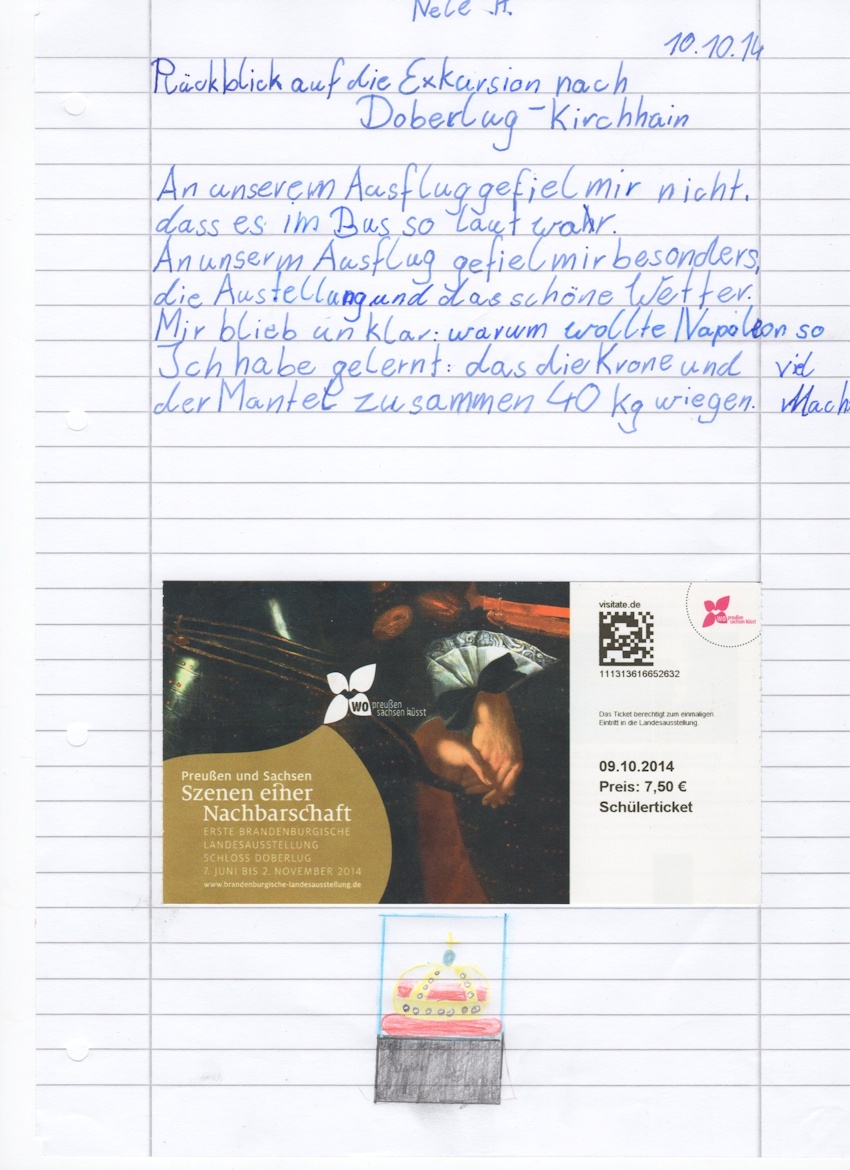 Nele A.
10.10.14
Rückblick auf die Exkursion nach
Doberlug-Kirchhain
An unserem Ausflug gefiel mir nicht,
dass es im Bus so laut wahr.
An unserm Ausflug gefiel mir besonders,
die Austellung und das schöne Wetter.
Mir blieb unklar: warum wollte Napoleon so
viel
Mach
Ich habe gelernt: das die Krone und
der Mantel zusammen 40 kg wiegen.
wo preußen
sachsen küsst
Preußen und Sachsen
Szenen einer
Nachbarschaft
ERSTE BRANDENBURGISCHE
LANDESAUSSTELLUNG
SCHLOSS DOBERLUG
7. JUNI BIS 2. NOVEMBER 2014
www.brandenburgische-landesausstellung.de
visitate.de
111313616652632
wo preußen
sachsen küsst
Das Ticket berechtigt zum einmaligen
Eintritt in die Landesausstellung.
09.10.2014
Preis: 7,50 €
Schülerticket